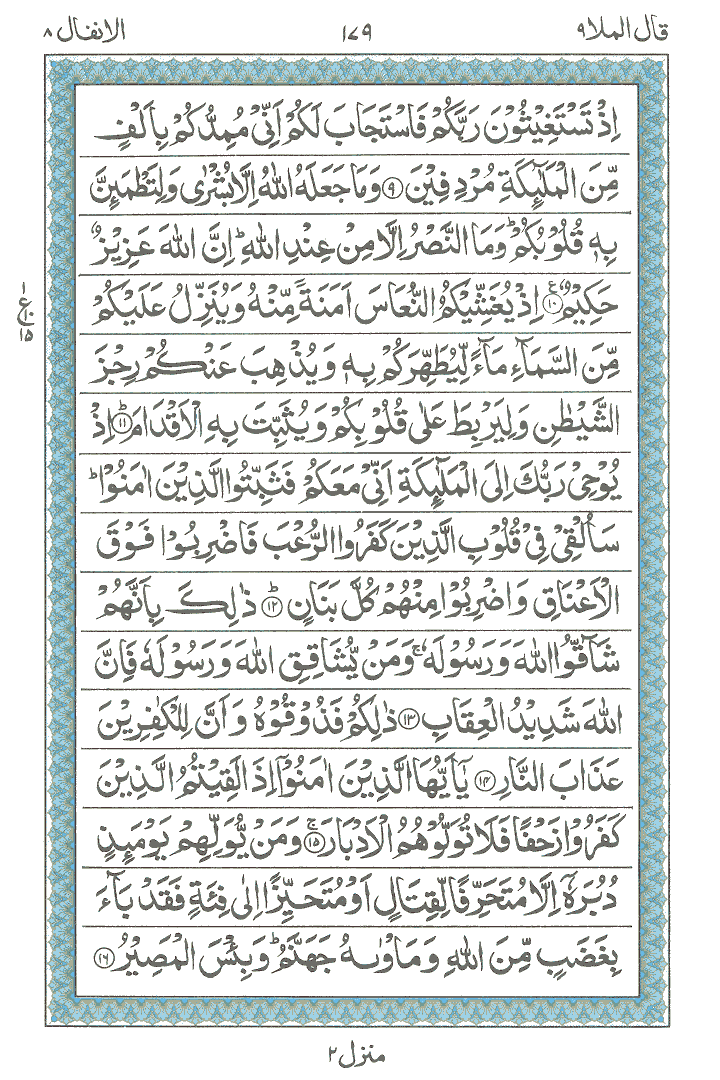 قال الملا ٩
١٧٩
الانفال ٨
اِذْ تَسْتَغِيْثُوْنَ رَبَّكُمْ فَاسْتَجَابَ لَكُمْ اَنِّىْ مُمِدُّكُمْ بِاَلْفٍ
مِّنَ الْمَلٰٓئِكَةِ مُرْدِفِيْنَ ﴿۹﴾ وَمَا جَعَلَهُ اللّٰهُ اِلَّا بُشْرٰى وَلِتَطْمَئِنَّ
بِهٖ قُلُوْبُكُمْ ؕ وَمَا النَّصْرُ اِلَّا مِنْ عِنْدِ اللّٰهِ ؕ اِنَّ اللّٰهَ عَزِيْزٌ
حَكِيْمٌ ﴿۱۰﴾ اِذْ يُغَشِّيْكُمُ النُّعَاسَ اَمَنَةً مِّنْهُ وَيُنَزِّلُ عَلَيْكُمْ
مِّنَ السَّمَآءِ مَآءً لِّيُطَهِّرَكُمْ بِهٖ وَيُذْهِبَ عَنْكُمْ رِجْزَ
الشَّيْطٰنِ وَلِيَرْبِطَ عَلٰى قُلُوْبِكُمْ وَيُثَبِّتَ بِهِ الْاَقْدَامَ ؕ﴿۱۱﴾ اِذْ
يُوْحِىْ رَبُّكَ اِلَى الْمَلٰٓئِكَةِ اَنِّىْ مَعَكُمْ فَثَبِّتُوا الَّذِيْنَ اٰمَنُوْا ؕ
سَاُلْقِىْ فِىْ قُلُوْبِ الَّذِيْنَ كَفَرُوا الرُّعْبَ فَاضْرِبُوْا فَوْقَ
الْاَعْنَاقِ وَاضْرِبُوْا مِنْهُمْ كُلَّ بَنَانٍ ؕ﴿۱۲﴾ ذٰلِكَ بِاَنَّهُمْ
شَآقُّوا اللّٰهَ وَرَسُوْلَهٗ ۚ وَمَنْ يُّشَاقِقِ اللّٰهَ وَرَسُوْلَهٗ فَاِنَّ
اللّٰهَ شَدِيْدُ الْعِقَابِ ﴿۱۳﴾ ذٰلِكُمْ فَذُوْقُوْهُ وَاَنَّ لِلْكٰفِرِيْنَ
عَذَابَ النَّارِ ﴿۱۴﴾ يٰۤاَيُّهَا الَّذِيْنَ اٰمَنُوْۤا اِذَا لَقِيْتُمُ الَّذِيْنَ
كَفَرُوْا زَحْفًا فَلَا تُوَلُّوْهُمُ الْاَدْبَارَ ۚ﴿۱۵﴾ وَمَنْ يُّوَلِّهِمْ يَوْمَئِذٍ
دُبُرَهٗۤ اِلَّا مُتَحَرِّفًا لِّقِتَالٍ اَوْ مُتَحَيِّزًا اِلٰى فِئَةٍ فَقَدْ بَآءَ
بِغَضَبٍ مِّنَ اللّٰهِ وَمَاْوٰٮهُ جَهَنَّمُ ؕ وَبِئْسَ الْمَصِيْرُ ﴿۱۶﴾
١
ع ١٠
١٥
منزل ٢